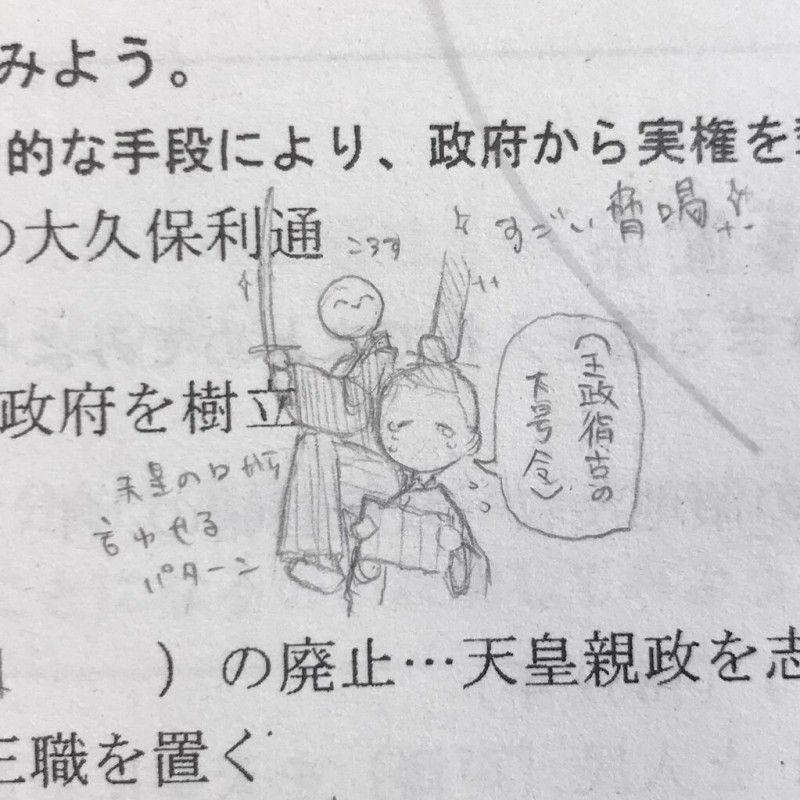 みよう。
的な手段により、政府から実権を
の大久保利通
ころす
すごい脅喝
政府を樹立
(王政復古の
大号令)
天皇の口から
言わせる
パターン
)の廃止…天皇親政を志
三職を置く